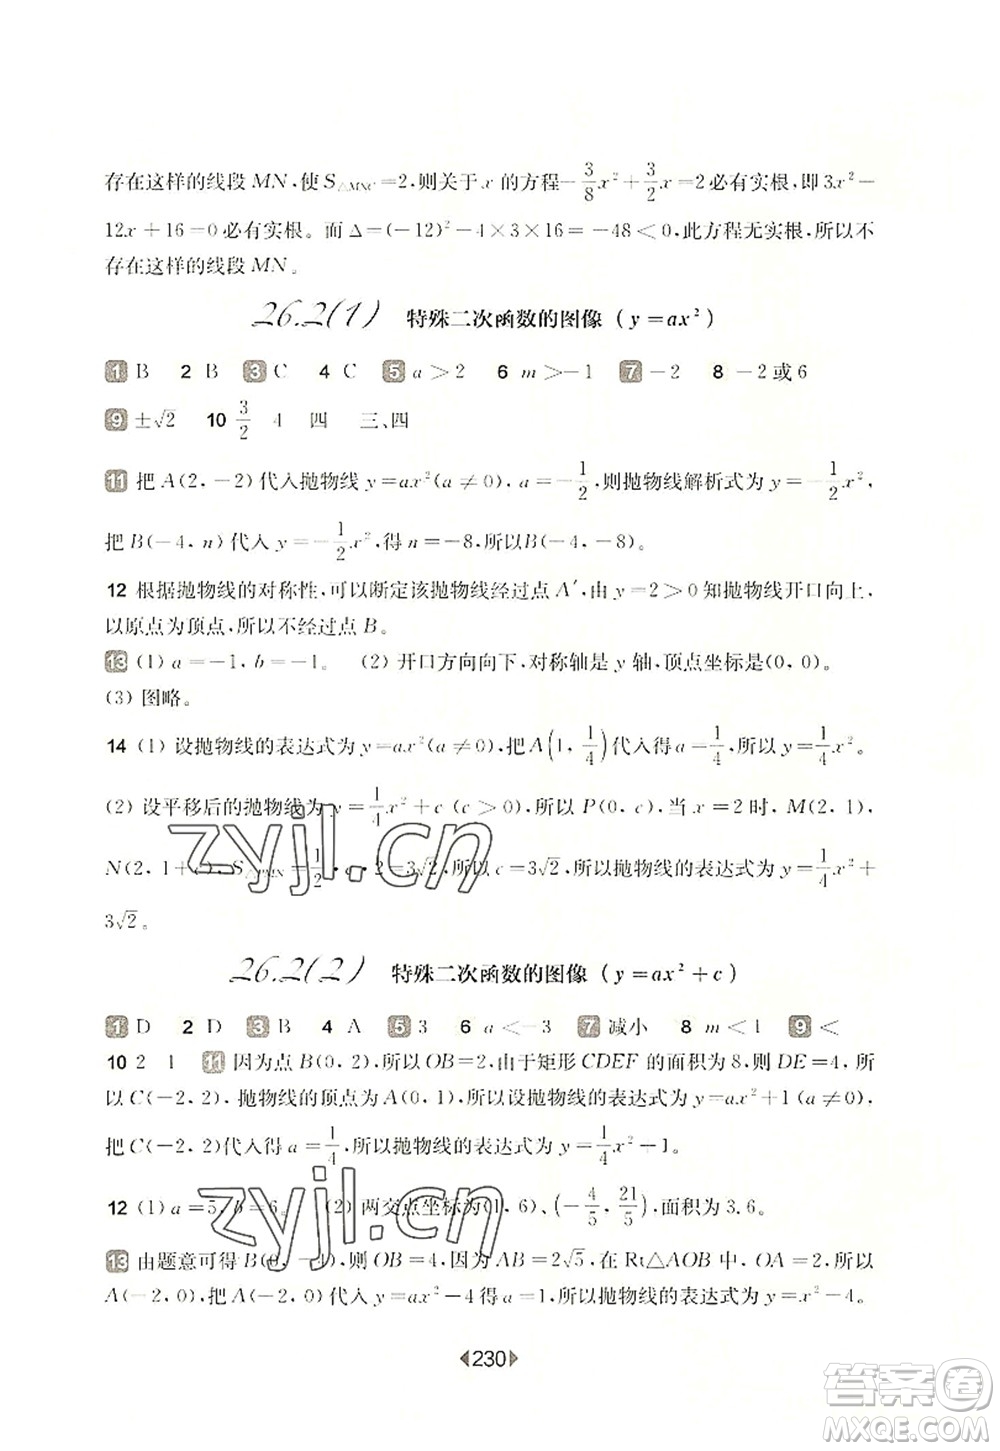 存在这样的线段 MN, 使 S△MNC=2, 则关于 x 的方程-3/8x²+3/2x=2必有实根, 即 3x²-
12x+16=0 必有实根。而 Δ=(-12)²-4×3×16=-48<0, 此方程无实根, 所以不
存在这样的线段 MN。
26.2(1) 特殊二次函数的图像 (y=ax²)
1 B 2 B 3 C 4 C 5 a>2 6 m>-1 7 -2 8 -2 或 6
9 ±√2 10 3/2 4 四 三、四
11 把 A(2, -2) 代入抛物线 y=ax²(a≠0), a=-1/2, 则抛物线解析式为 y=-1/2x²,
把 B(-4, n) 代入 y=-1/2x², 得 n=-8, 所以B(-4, -8)。
12 根据抛物线的对称性, 可以断定该抛物线经过点 A′, 由 y=2>0 知抛物线开口向上,
以原点为顶点, 所以不经过点 B。
13 (1) a=-1, b=-1。 (2) 开口方向向下, 对称轴是 y 轴, 顶点坐标是(0, 0)。
(3) 图略。
14 (1) 设抛物线的表达式为 y=ax²(a≠0), 把 A(1, 1/4)代入得 a=1/4, 所以 y=1/4x²。
(2) 设平移后的抛物线为 y=1/4x²+c (c>0), 所以 P(0, c), 当 x=2 时, M(2, 1),
N(2, 1+c), S△PMN=1/2·c·2=3√2, 所以 c=3√2, 所以抛物线的表达式为 y=1/4x²+
3√2。
26.2(2) 特殊二次函数的图像 (y=ax²+c)
1 D 2 D 3 B 4 A 5 3 6 a<-3 7 减小 8 m<1 9 <
10 2 1 11 因为点 B(0, 2), 所以 OB=2, 由于矩形 CDEF 的面积为 8, 则 DE=4, 所
以 C(-2, 2), 抛物线的顶点为 A(0, 1), 所以设抛物线的表达式为 y=ax²+1(a≠0),
把 C(-2, 2)代入得 a=1/4, 所以抛物线的表达式为 y=1/4x²+1。
12 (1) a=5, b=6。 (2) 两交点坐标为(1, 6)、(-4/5, 21/5), 面积为 3.6。
13 由题意可得 B(0, -4), 则 OB=4, 因为 AB=2√5, 在 Rt△AOB 中, OA=2, 所以
A(-2, 0), 把 A(-2, 0) 代入 y=ax²-4 得 a=1, 所以抛物线的表达式为 y=x²-4。
230
zyjl.cn
zyjl.cn
答案圈
MXQE.COM